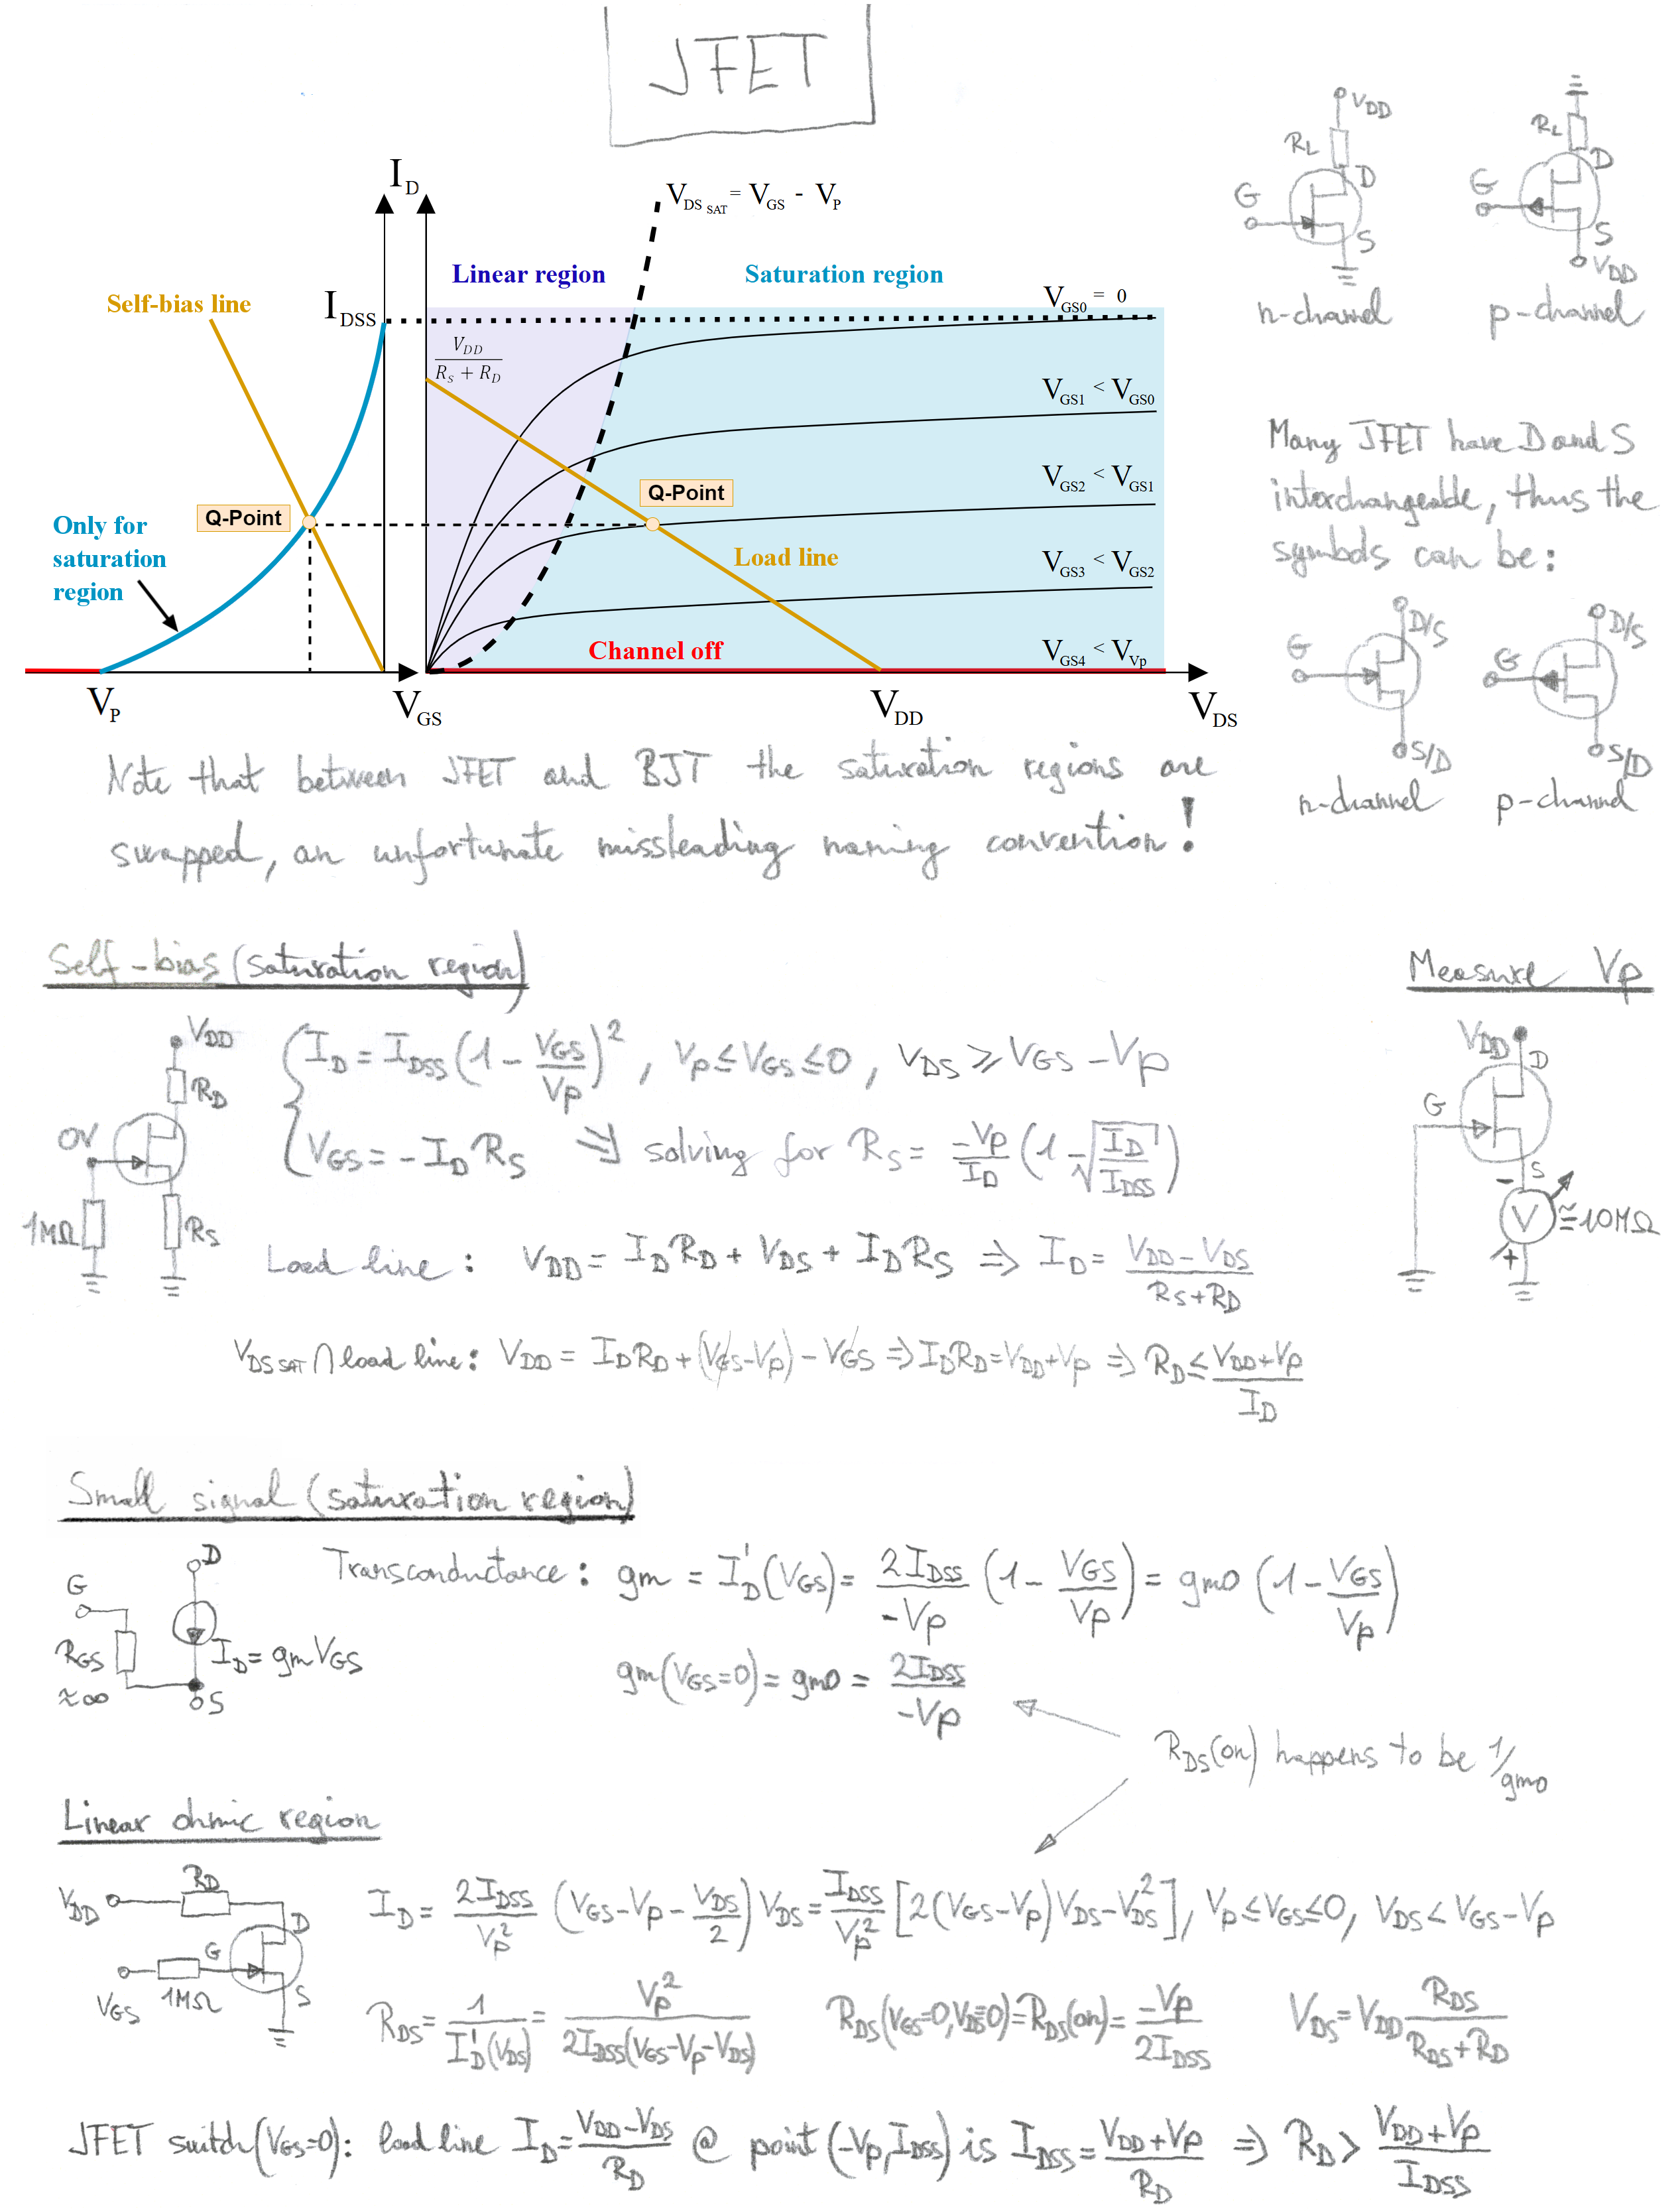 JFET
I_D
V_DS SAT = V_GS - V_P
Linear region
Saturation region
Self-bias line
I_DSS
V_GS0 = 0
V_DD / (R_S + R_D)
V_GS1 < V_GS0
V_GS2 < V_GS1
Q-Point
Q-Point
Only for
saturation
region
Load line
V_GS3 < V_GS2
Channel off
V_GS4 < V_Vp
V_P
V_GS
V_DD
V_DS
V_DD
R_L
D
G
S
n-channel
R_L
D
G
S
V_DD
p-channel
Many JFET have D and S
interchangeable, thus the
symbols can be:
D/S
G
S/D
n-channel
D/S
G
S/D
p-channel
Note that between JFET and BJT the saturation regions are
swapped, an unfortunate missleading naming convention!
Self-bias (saturation region)
V_DD
R_D
0V
1MΩ
R_S
I_D = I_DSS (1 - V_GS/V_P)^2, V_P ≤ V_GS ≤ 0, V_DS ≥ V_GS - V_P
V_GS = -I_D R_S ⇒ solving for R_S = -V_P/I_D (1 - √(I_D/I_DSS))
Load line: V_DD = I_D R_D + V_DS + I_D R_S ⇒ I_D = (V_DD - V_DS)/(R_S + R_D)
V_DS SAT ∩ load line: V_DD = I_D R_D + (V_GS - V_P) - V_GS ⇒ I_D R_D = V_DD + V_P ⇒ R_D ≤ (V_DD + V_P)/I_D
Measure V_P
V_DD
D
G
S
-
V
≅10MΩ
+
Small signal (saturation region)
D
G
R_GS
≈∞
I_D = gm V_GS
S
Transconductance: gm = I_D'(V_GS) = 2I_DSS/-V_P (1 - V_GS/V_P) = gm0 (1 - V_GS/V_P)
gm(V_GS=0) = gm0 = 2I_DSS/-V_P
R_DS(on) happens to be 1/gm0
Linear ohmic region
V_DD
R_D
D
G
V_GS
1MΩ
S
I_D = 2I_DSS/V_P^2 (V_GS - V_P - V_DS/2) V_DS = I_DSS/V_P^2 [2(V_GS - V_P)V_DS - V_DS^2], V_P ≤ V_GS ≤ 0, V_DS < V_GS - V_P
R_DS = 1/I_D'(V_DS) = V_P^2/(2I_DSS(V_GS - V_P - V_DS))
R_DS(V_GS=0, V_DS=0) = R_DS(on) = -V_P/2I_DSS
V_DS = V_DD R_DS/(R_DS + R_D)
JFET switch (V_GS=0): load line I_D = (V_DD - V_DS)/R_D @ point (-V_P, I_DSS) is I_DSS = (V_DD + V_P)/R_D ⇒ R_D > (V_DD + V_P)/I_DSS